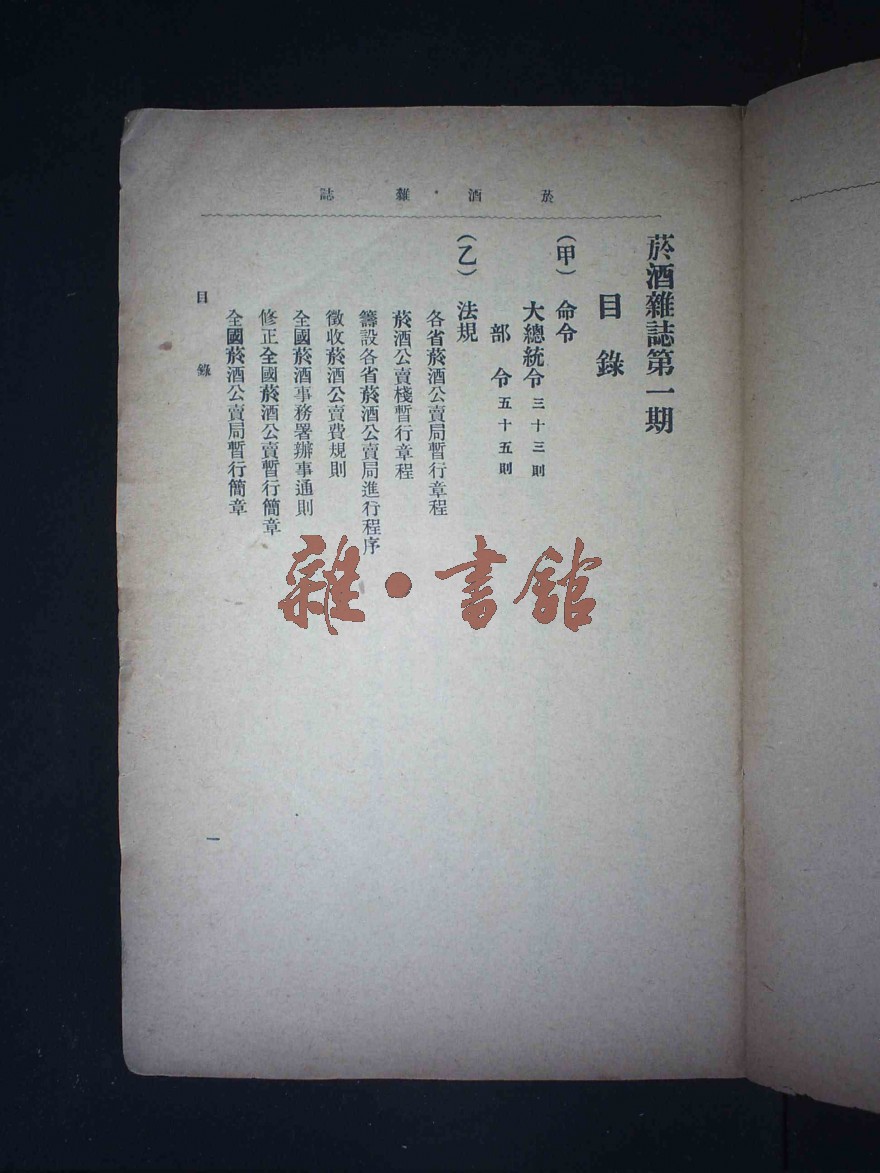 菸酒雜誌
菸酒雜誌第一期
目錄
（甲）命令
大總統令三十三則
部令五十五則
（乙）法規
各省菸酒公賣局暫行章程
菸酒公賣棧暫行章程
籌設各省菸酒公賣局進行程序
徵收菸酒公賣費規則
全國菸酒事務署辦事通則
修正全國菸酒公賣暫行簡章
全國菸酒公賣局暫行簡章
目錄
一
雜·書館